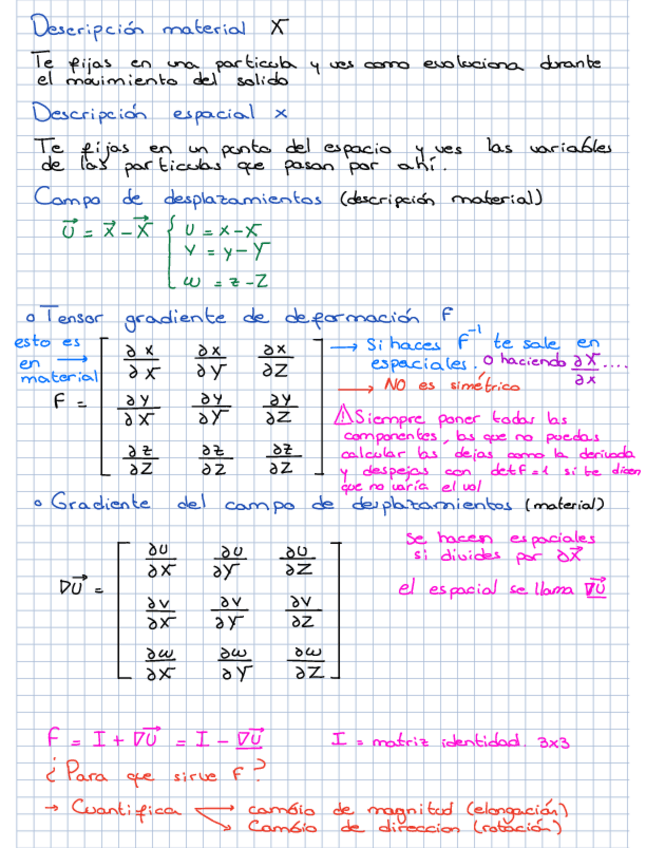 Descripción material X
Te fijas en una particula y ves como evoluciona durante
el movimiento del solido
Descripción espacial x
Te fijas en un punto del espacio y ves las variables
de las particulas que pasan por ahí.
Campo de desplazamientos (descripción material)
U⃗ = x⃗ - X⃗ { U = x - X
V = y - Y
w = z - Z
o Tensor gradiente de deformación F
esto es → en material
F = [ ∂x/∂X ∂x/∂Y ∂x/∂Z
∂y/∂X ∂y/∂Y ∂y/∂Z
∂z/∂Z ∂z/∂Z ∂z/∂Z ]
→ Si haces F⁻¹ te sale en
espaciales. O haciendo ∂X/∂x ....
→ NO es simétrico
⚠ Siempre poner todas las
componentes, las que no puedas
calcular las dejas como la derivada
y despejas con detF=1 si te dicen
que no varía el vol
o Gradiente del campo de desplazamientos (material)
∇U⃗ = [ ∂U/∂X ∂U/∂Y ∂U/∂Z
∂v/∂X ∂v/∂Y ∂v/∂Z
∂w/∂X ∂w/∂Y ∂w/∂Z ]
se hacen espaciales
si divides por ∂x⃗
el espacial se llama ∇U⃗
F = I + ∇U⃗ = I - ∇U⃗ I = matriz identidad 3x3
¿Para que sirve F?
→ Cuantifica → cambio de magnitud (elongación)
→ Cambio de direccion (rotación)